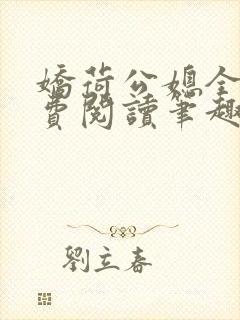 嬌荷公媳全
費閱讀筆趣
劉立春